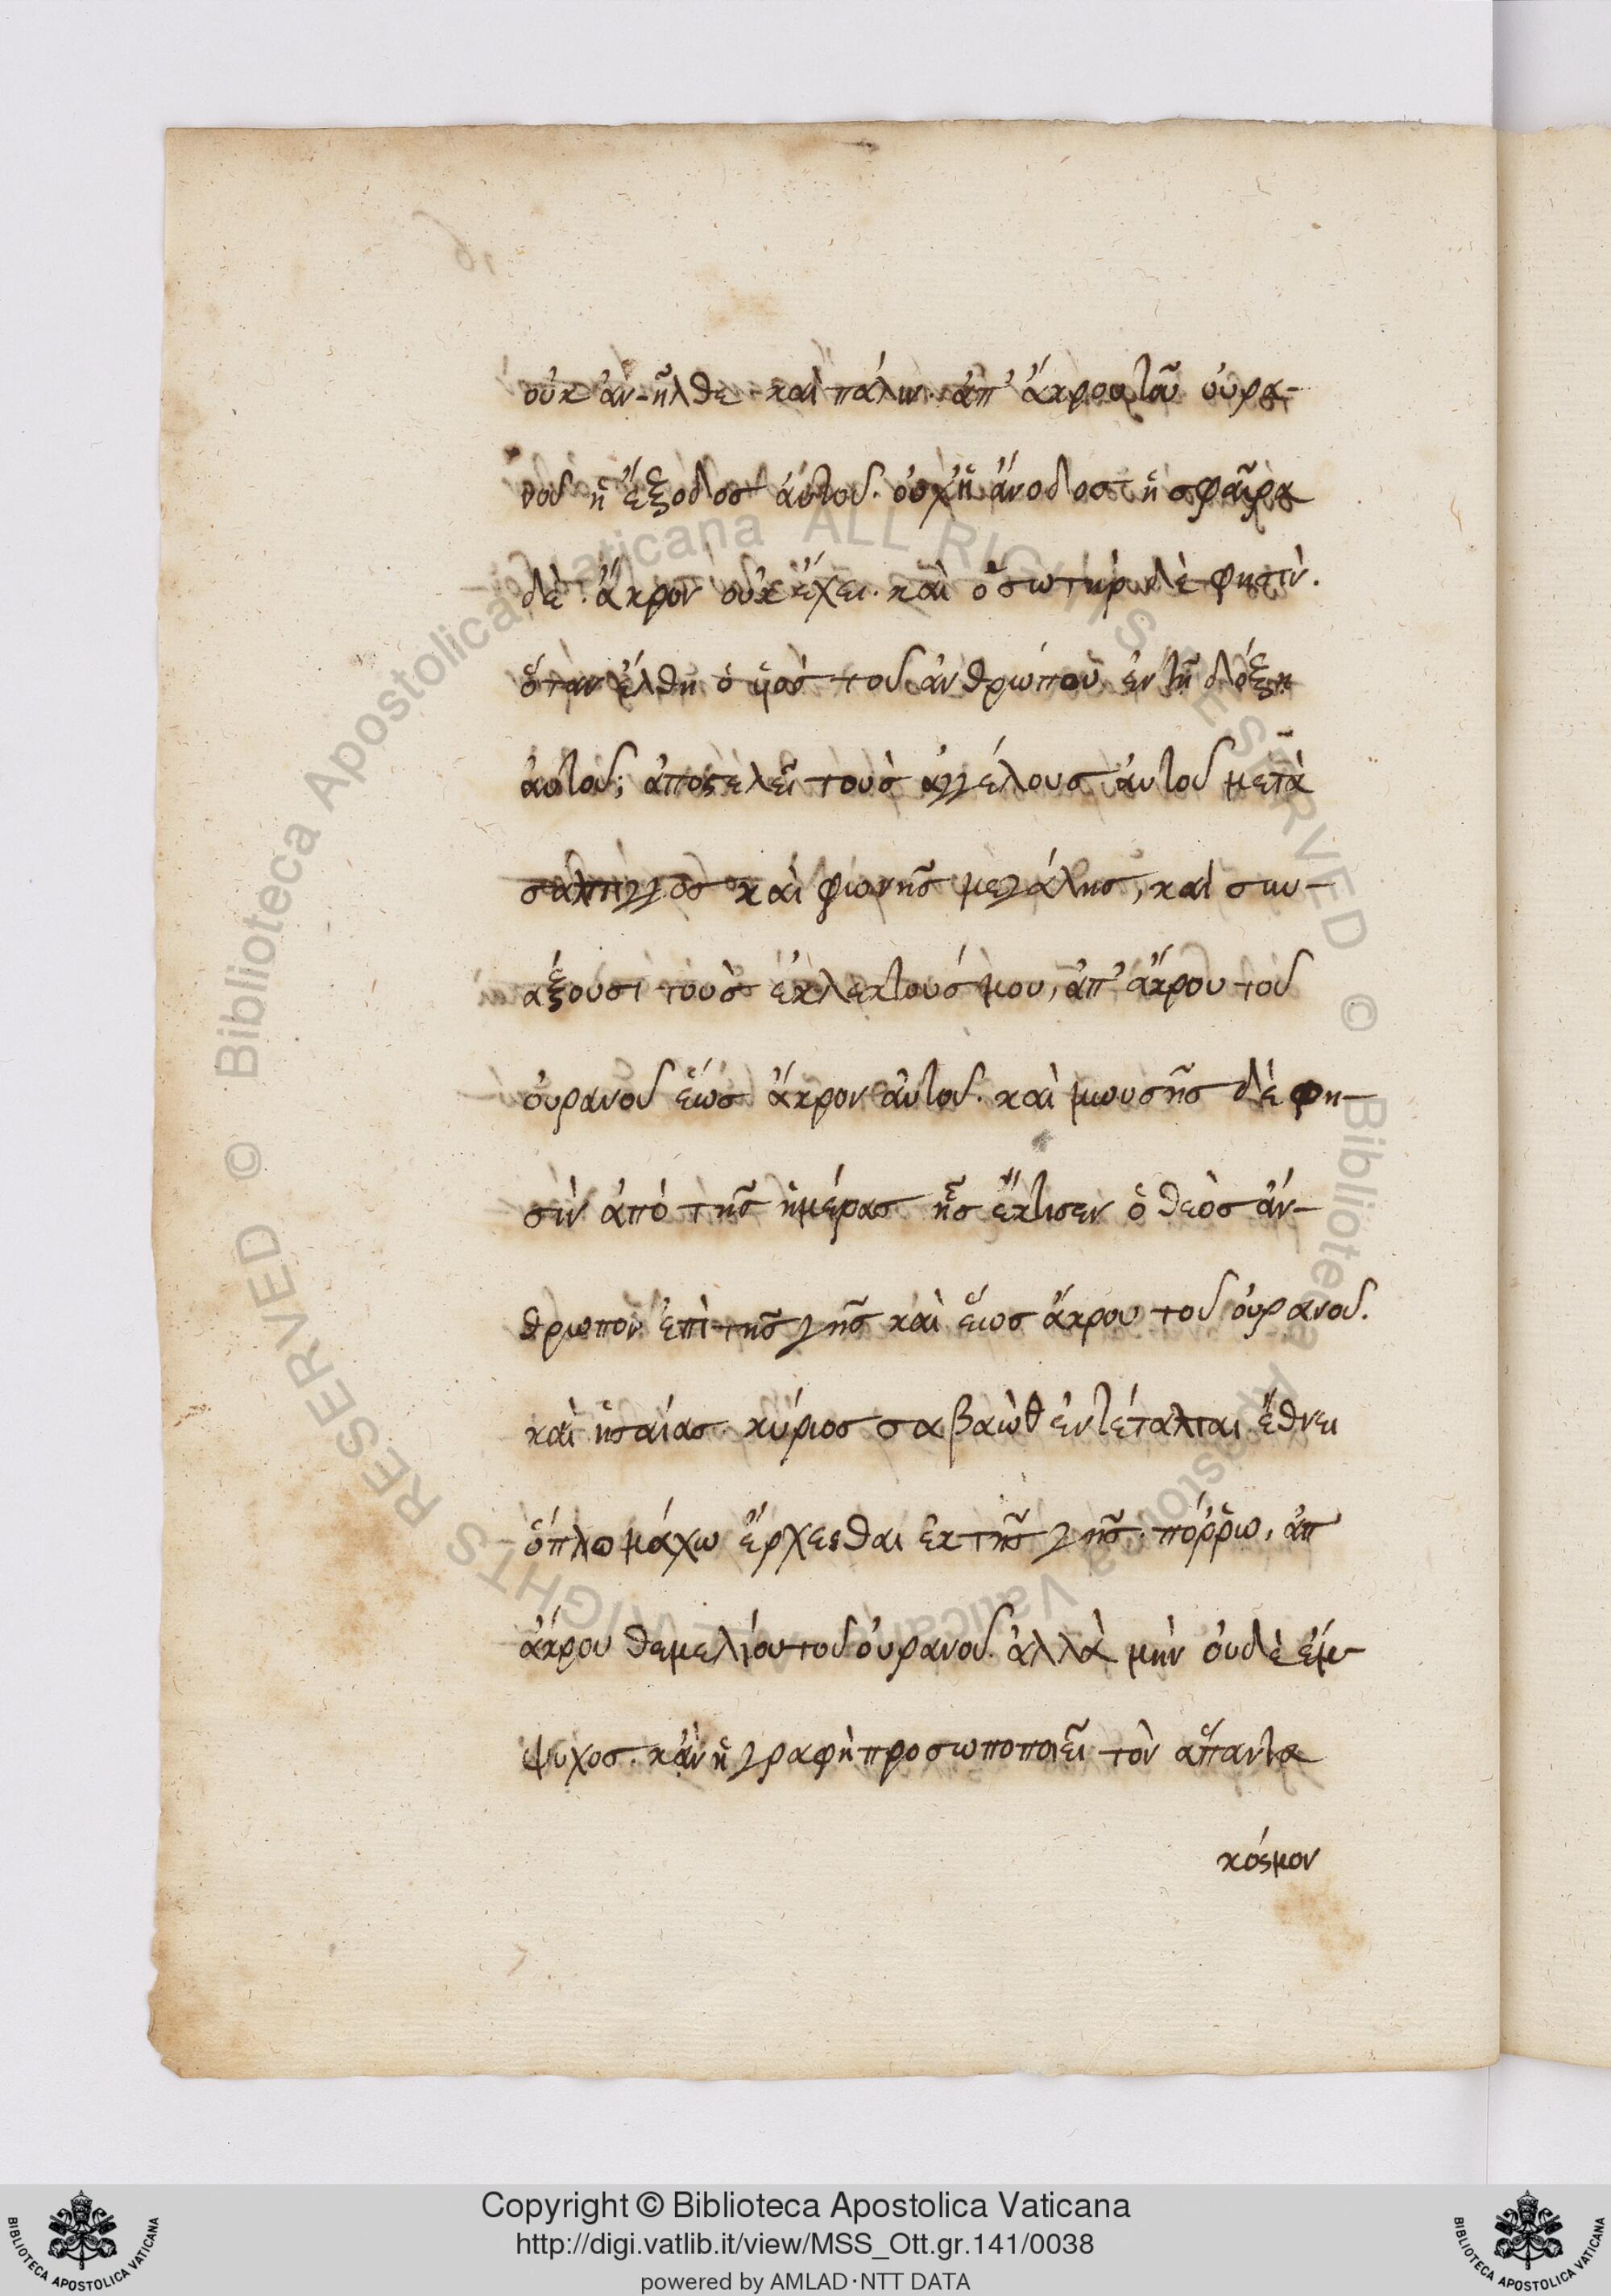 οὐκ ἀν-ῆλθε καὶ πάλιν. ἀπ' ἄκρου τοῦ οὐρα-
νοῦ ἡ ἔξοδος ἀυτοῦ. οὐχ ἡ ἄνοδος ἡ σφαῖρα
δὲ ἄκρον οὐκ ἔχει. καὶ ὁ σωτὴρ δὲ φησὶν.
ὅταν ἔλθη ὁ υἱὸς τοῦ ἀνθρώπου ἐν τῆ δόξη
ἀυτοῦ; ἀποστελεῖ τοὺς ἀγγέλους ἀυτοῦ μετὰ
σάλπιγγος καὶ φωνῆς μεγάλης, καὶ συν-
άξουσι τοὺς ἐκλεκτούς μου, ἀπ' ἄκρου τοῦ
οὐρανοῦ ἕως ἄκρον ἀυτοῦ. καὶ μωυσῆς δὲ φη-
σὶν ἀπὸ τῆς ἡμέρας ἧς ἔκτισεν ὁ θεὸς ἄν-
θρωπον ἐπὶ τῆς γῆς καὶ ἕως ἄκρου τοῦ οὐρανοῦ.
καὶ ἡσαίας. κύριος σαβαὼθ ἐντέταλται ἔθνει
ὁπλομάχω ἔρχεσθαι ἐκ τῆς γῆς πόρρω, ἀπ'
ἄκρου θεμελίου τοῦ οὐρανοῦ. ἀλλὰ μὴν οὐδὲ ἔμ-
ψυχος. κἂν ἡ γραφὴ προσωποποιεῖ τὸν ἅπαντα
κόσμον
Copyright © Biblioteca Apostolica Vaticana
http://digi.vatlib.it/view/MSS_Ott.gr.141/0038
powered by AMLAD·NTT DATA